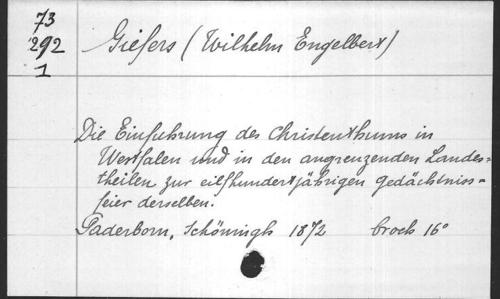 73
292
1
Giefers (Wilhelm Engelbert)
Die Einfuhrung des Christenthums in
Westfalen und in den angrenzenden Landes=
theilen zur eilfhundertjährigen Gedächtniss=
feier derselben.
Paderborn, Schöningh 1872 broch 16°